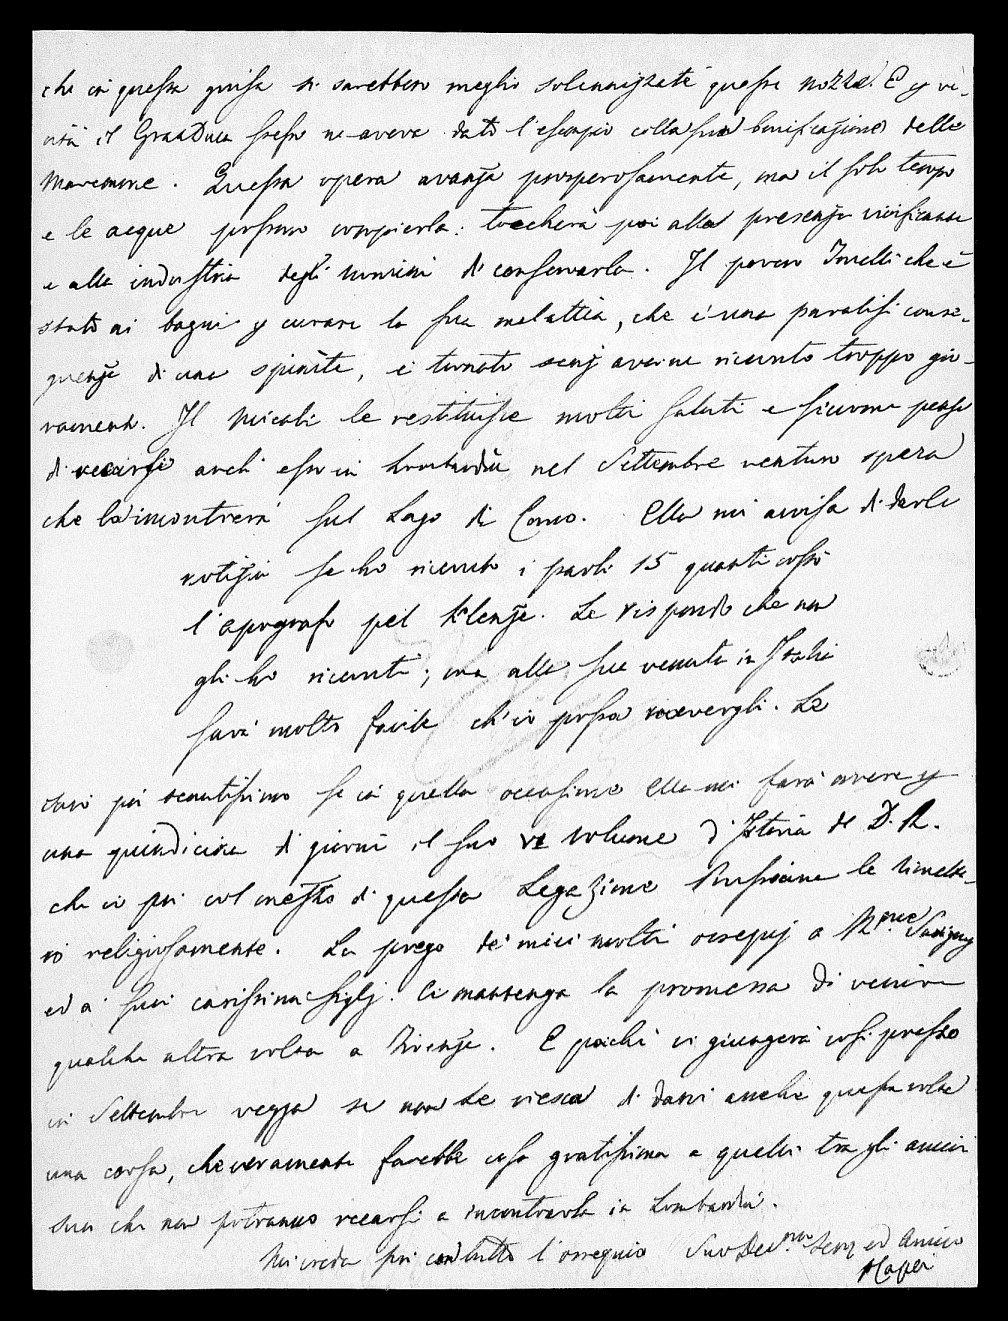 che in questa guisa si sarebbero meglio solennizzate queste nozze. E p ve-
rità il GranDuca stesso ne aveva dato l'esempio colla sua bonificazione delle
Maremme. Questa opera avanza prosperosamente, ma il solo tempo
e le acque possono compierla: toccherà poi alla presenza vivificante
e alla industria degli uomini di conservarla. Il povero Tonelli che è
stato ai bagni p curare la sua malattia, che è una paralisi conse-
guenza di una spinite, è tornato senz averne ricevuto troppo gio-
vamento. Il Micali le restituisce molti saluti e siccome pensa
di recarsi anch esso in Lombardia nel Settembre venturo spera
che la incontrerà sul Lago di Como. Ella mi avvisa di darle
notizia se ho ricevuto i paoli 15 quanti costò
l'apografo pel Klenze. Le rispondo che non
gli ho ricevuti; ma alla sua venuta in Italia
sarà molto facile ch'io possa ricevergli. Le
sarei poi tenutissimo se in quella occasione Ella mi farà avere p
una quindicina di giorni il suo VI volume d'Istoria del D. R.
che io poi col mezzo di questa Legazione Prussiana le rimette-
rò religiosamente. La prego de' miei molti ossequj a M.me Savigny
ed a' suoi carissimi figlj. Ci mantenga la promessa di venire
qualche altra volta a Firenze. E poiché vi giungerà così presso
in Settembre vegga se non Le riesca di darvi anche questa volta
una corsa, che veramente farebbe cosa gratissima a quelli tra gli amici
suoi che non potranno recarsi a incontrarla in Lombardia.
Mi creda poi con tutto l'ossequio Suo Dev.mo Serv ed Amico
Capei